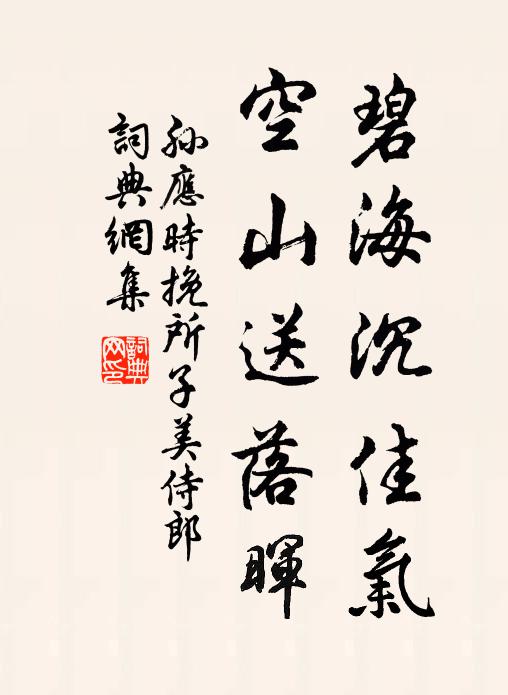 碧海沉佳氣
空山送落暉
孫應時挽所子美侍郎
詞典網集
詞典网印